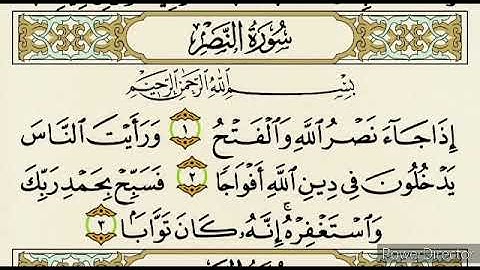 سُورَةُ النَّصْرِ
بِسْمِ اللَّهِ الرَّحْمَنِ الرَّحِيمِ
إِذَا جَآءَ نَصْرُ اللَّهِ وَالْفَتْحُ ١ وَرَأَيْتَ النَّاسَ
يَدْخُلُونَ فِي دِينِ اللَّهِ أَفْوَاجًا ٢ فَسَبِّحْ بِحَمْدِ رَبِّكَ
وَاسْتَغْفِرْهُ ۚ إِنَّهُۥ كَانَ تَوَّابًۢا ٣
PowerDirector